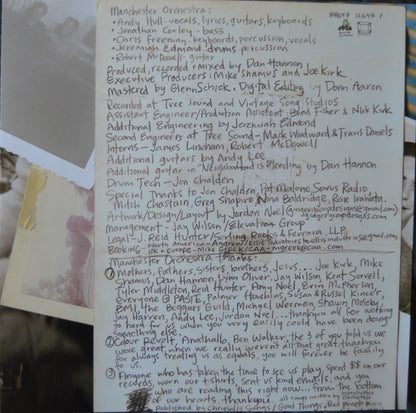 Manchester Orchestra:
• Andy Hull - vocals, lyrics, guitars, keyboards
• Jonathan Corley - bass
• Chris Freeman - keyboards, percussion, vocals
• Jeremiah Edmond drums percussion
• Robert McDowell - guitar
Produced, recorded + mixed by Dan Hannon
Executive Producers: Mike Shamus and Joe Kirk
Mastered by Glenn Schick, Digital Editing by Donn Aaron
Recorded at Tree Sound and Vintage Song Studios
Assistant Engineer/Production Assistant- Brad Fisher & Nick Kirk
Additional Engineering by Jeremiah Edmond
Second Engineers at Tree Sound- Mack Woodward & Travis Daniels
Interns- James Linehann, Robert McDowell
Additional guitars by Andy Lee
Additional guitar in "Neighborhood is Bleeding" by Dan Hannon
Drum Tech- Jon Chalden
Special Thanks to Jon Chalden, Pat Malone, Sovus Radio,
Mitch Chastain, Greg Shapiro, Nina Baldridge, Rose Iwanita.
Artwork/Design/Layout by Jordan Noel
Management- Jay Wilson/ Group
Legal- J. Reid Hunter/Serling Rooks & Ferrara, LLP
Booking- North American- Andrew/Ellis Industries
UK + Europe - Mike Greek/CAA-
Manchester Orchestra thanks:
① Mothers, Fathers, sisters, brothers, Jesus... Joe Kirk, Mike
Shamus, Dan Hannon, Lynn Oliver, Jay Wilson, Kent Sorrell,
Tyler Middleton, Reid Hunter, Amy Noel, Erin McPherson,
everyone @ PASTE, Palmer Houchins, Susan & Russel Kinder,
BMI, the Beggars Guild, Michael Weerman, Shaun Moseby,
Jay Harren, Andy Lee, Jordan Noel....thankyou all for working
so hard for us when you very easily could have been doing
something else.
② Colour Revolt, Anathallo, Ben Walker, the 3 of you told us we
were great when we really weren't all that great. thankyou
for always treating us as equals, you will forever be family
to us.
③ Anyone who has taken the time to see us play, spent $$ on our
records, worn our t-shirts, sent us kind emails, and you
who are reading this right now... from the bottom
of our hearts, thankyou. all songs written by Manchester Orchestra
Published by Chrysalis Songs/